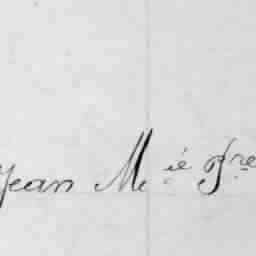 Jean M.ie Pre